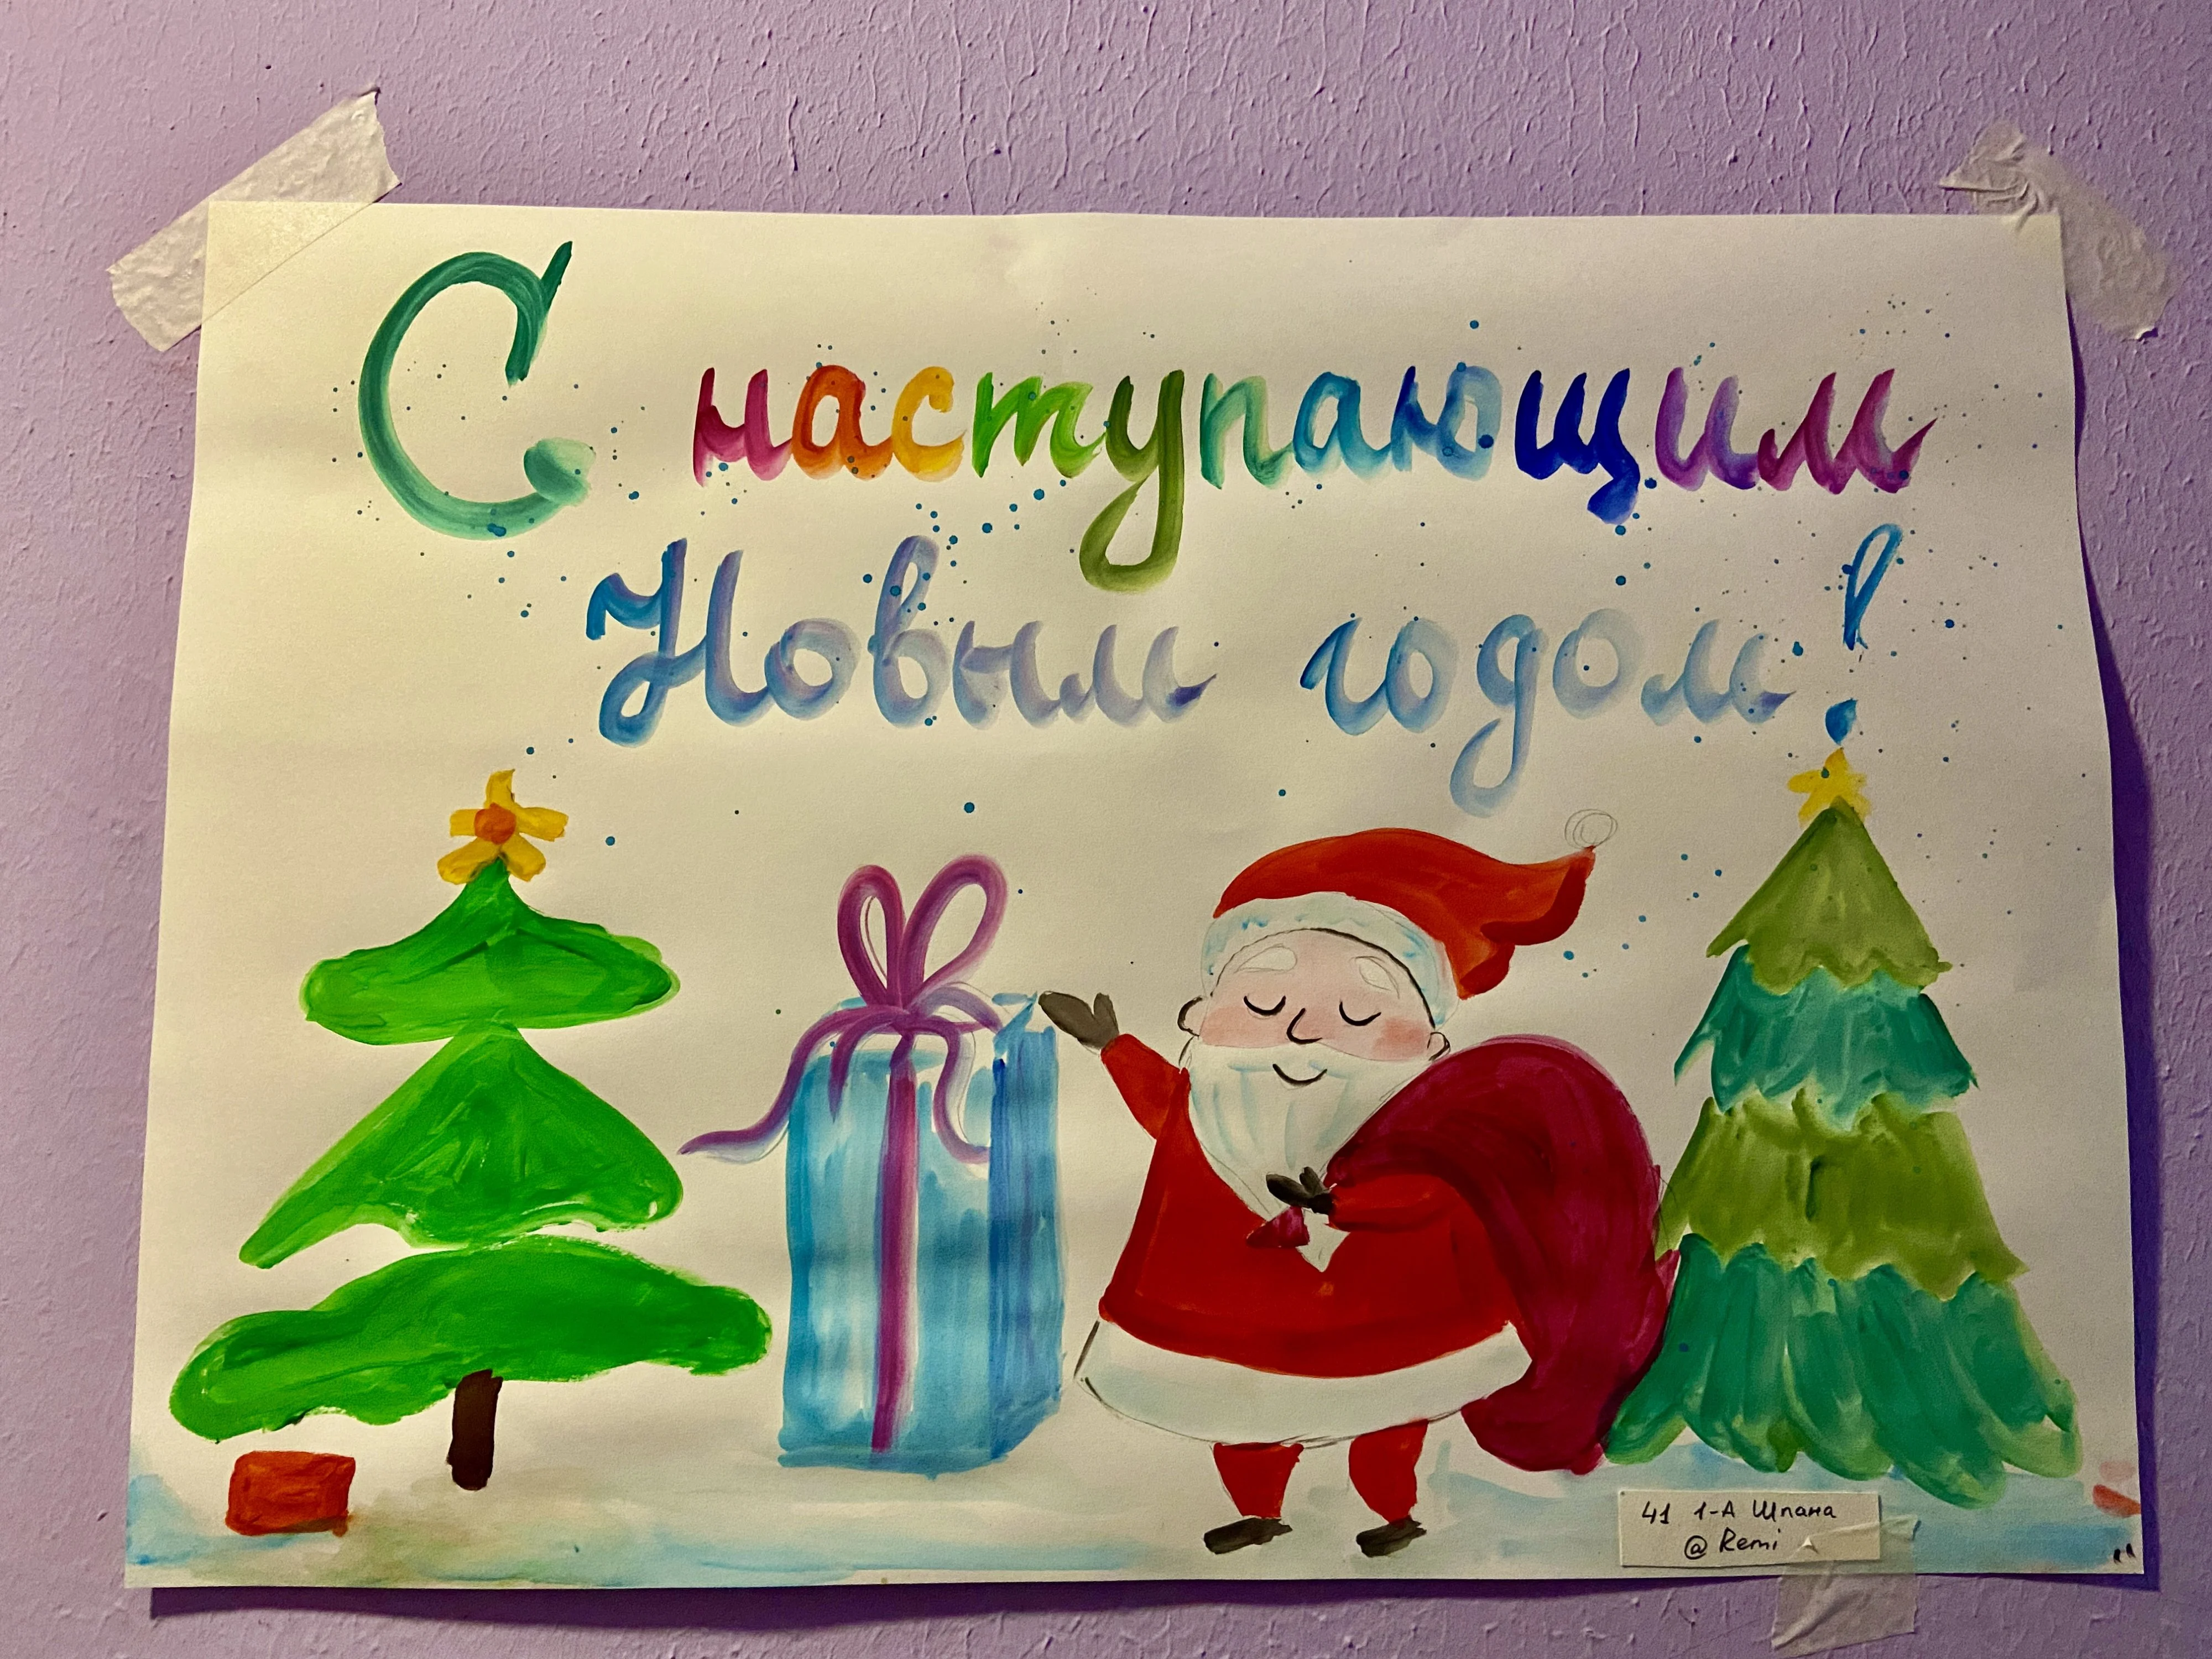 С наступающим
Новым годом!
41 1-А Шпана
@ Remi